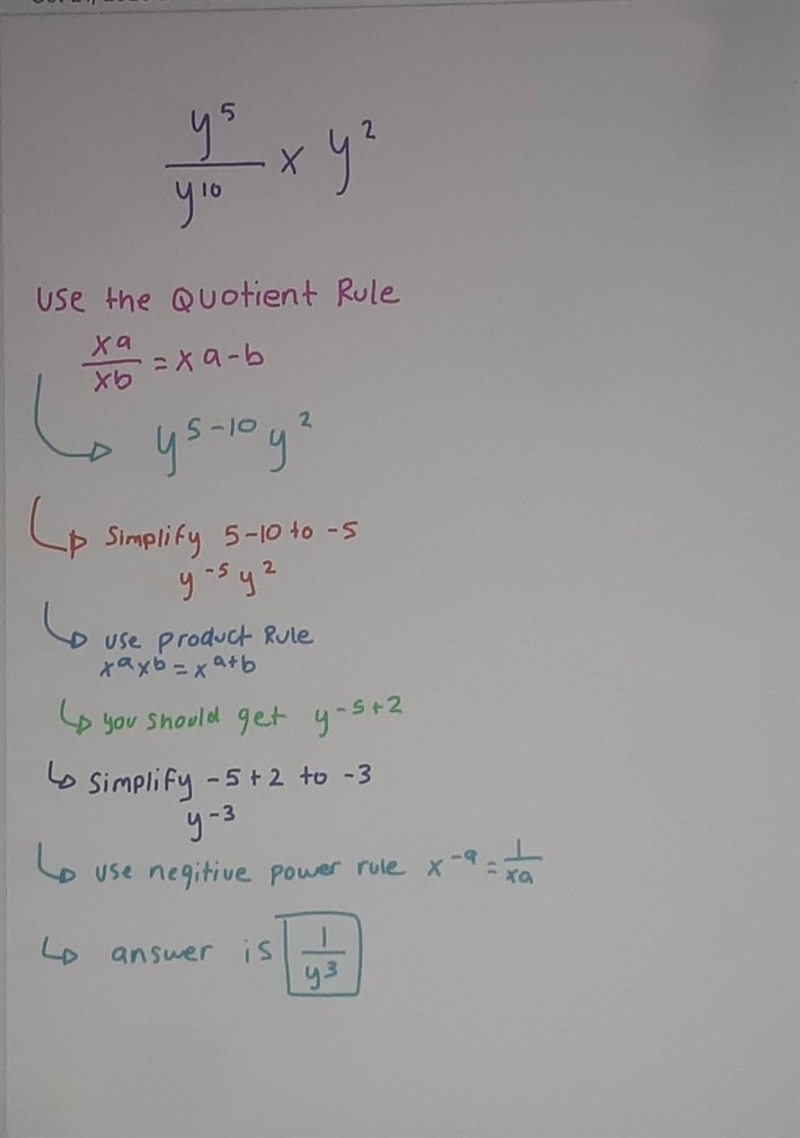 y⁵
y¹⁰
x y²
Use the Quotient Rule
xa
xb
= x a-b
y⁵⁻¹⁰ y²
Simplify 5-10 to -5
y⁻⁵ y²
use product Rule
xᵃxᵇ = xᵃ⁺ᵇ
you should get y⁻⁵⁺²
Simplify -5+2 to -3
y⁻³
use negitive power rule x⁻ᵃ = 1
xa
answer is 1
y³